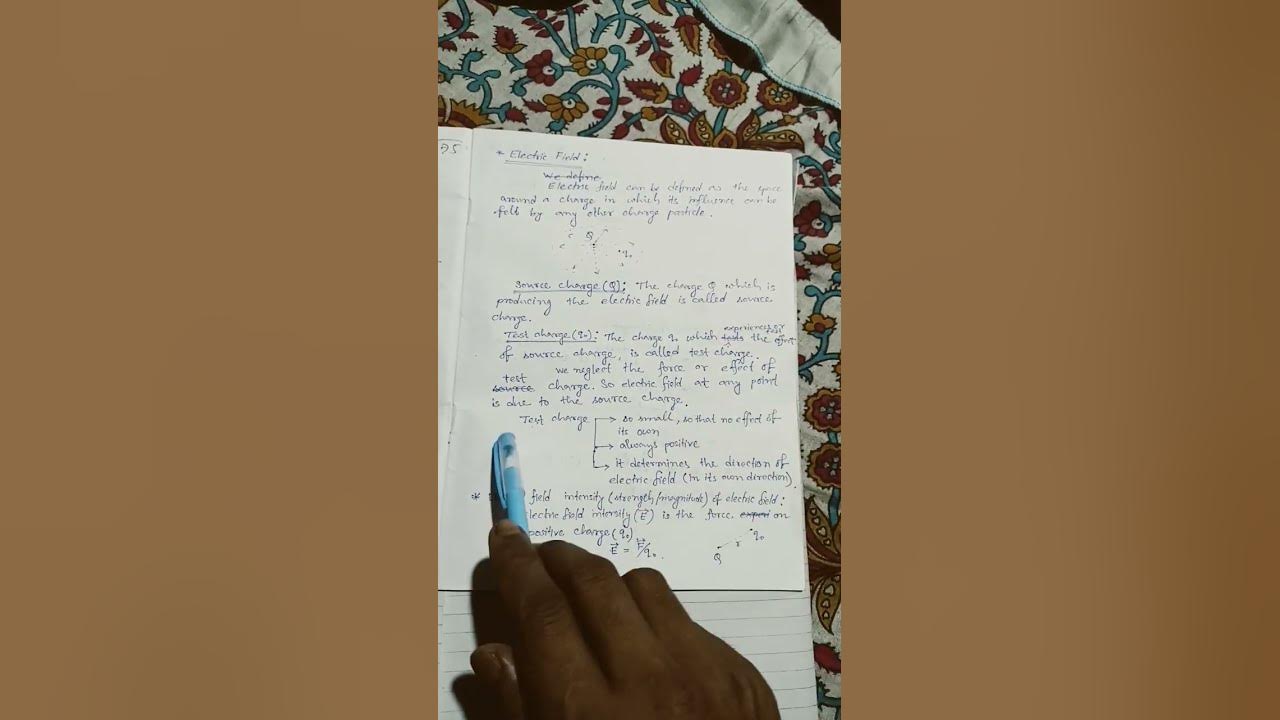 * Electric Field:
We define
Electric field can be defined as the space
around a charge in which its influence can be
felt by any other charge particle.
Q
q₀
Source charge (Q): The charge Q which is
producing the electric field is called source
charge.
experiences or
Test charge (q₀): The charge q₀ which tests the effect
of source charge, is called test charge.
we neglect the force or effect of
test
source charge. So electric field at any point
is due to the source charge.
Test charge → so small, so that no effect of
its own
→ always positive
→ It determines the direction of
electric field (in its own direction).
* field intensity (strength/magnitude) of electric field:
electric field intensity (E⃗) is the force on
positive charge (q₀)
E⃗ = F⃗/q₀.
Q r q₀